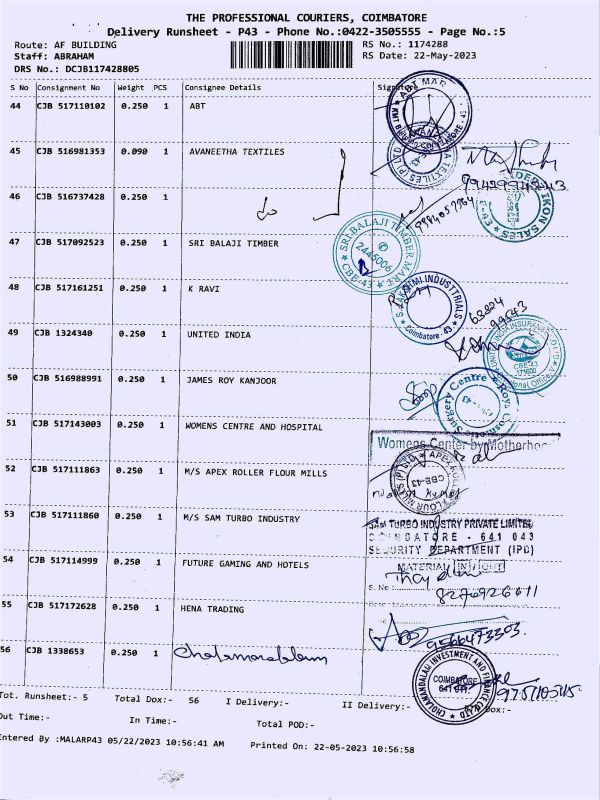 THE PROFESSIONAL COURIERS, COIMBATORE
Delivery Runsheet - P43 - Phone No.:0422-3505555 - Page No.:5
Route: AF BUILDING
RS No.: 1174288
Staff: ABRAHAM
RS Date: 22-May-2023
DRS No.: DCJB117428805
S No Consignment No Weight PCS Consignee Details Signature
44 CJB 517110102 0.250 1 ABT
45 CJB 516981353 0.090 1 AVANEETHA TEXTILES
46 CJB 516737428 0.250 1 do
47 CJB 517092523 0.250 1 SRI BALAJI TIMBER
SRI BALAJI TIMBER MART
2445006
CBE-43
48 CJB 517161251 0.250 1 K RAVI
49 CJB 1324340 0.250 1 UNITED INDIA
CBE-43
50 CJB 516988991 0.250 1 JAMES ROY KANJOOR
51 CJB 517143003 0.250 1 WOMENS CENTRE AND HOSPITAL
Womens Center by Motherhood
52 CJB 517111863 0.250 1 M/S APEX ROLLER FLOUR MILLS
CBE-43
53 CJB 517111860 0.250 1 M/S SAM TURBO INDUSTRY
SAM TURBO INDUSTRY PRIVATE LIMITED
COIMBATORE - 641 043
SECURITY DEPARTMENT (IPD)
54 CJB 517114999 0.250 1 FUTURE GAMING AND HOTELS
MATERIAL IN / OUT
S. No :
8270926011
55 CJB 517172628 0.250 1 HENA TRADING
9566473303
56 CJB 1338653 0.250 1 Cholamandalam
CHOLAMANDALAM INVESTMENT AND FINANCE CO LTD
COIMBATORE
Tot. Runsheet:- 5 Total Dox:- 56 I Delivery:- II Delivery:-
Out Time:- In Time:- Total POD:-
Entered By :MALARP43 05/22/2023 10:56:41 AM Printed On: 22-05-2023 10:56:58